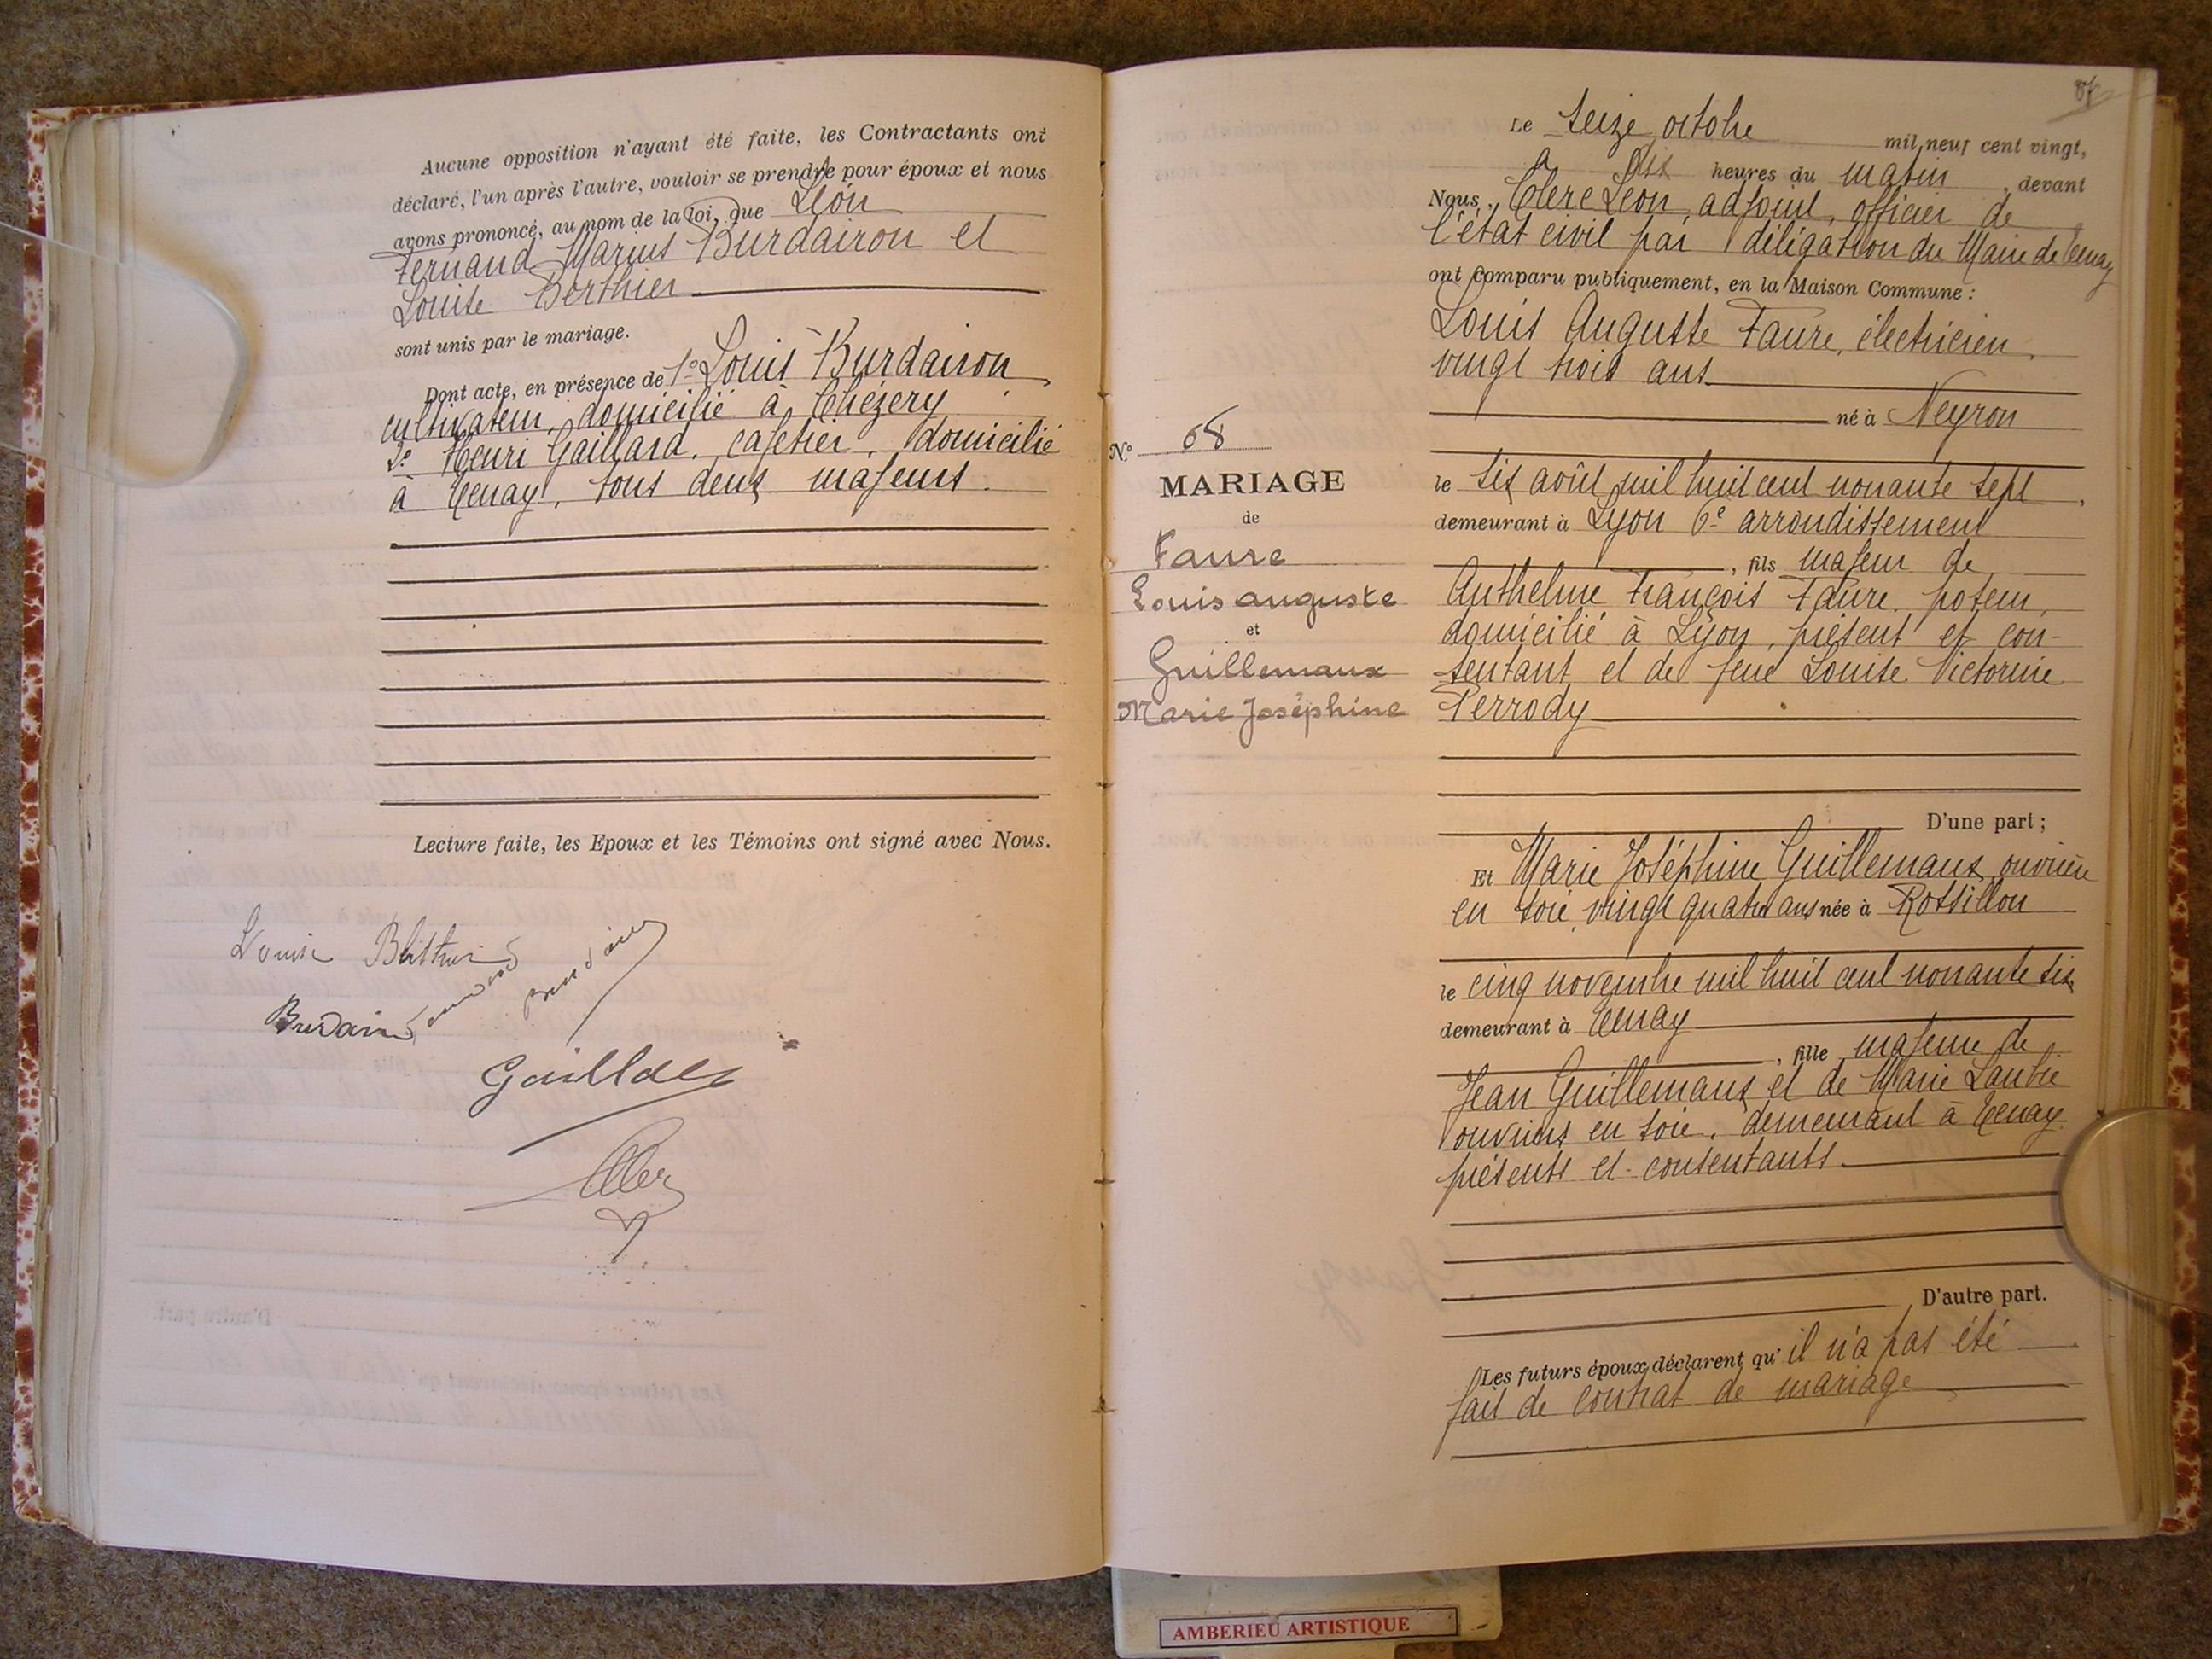 Aucune opposition n'ayant été faite, les Contractants ont
déclaré, l'un après l'autre, vouloir se prendre pour époux et nous
avons prononcé, au nom de la loi, que Léon
Fernand Marius Burdairon et
Louise Berthier
sont unis par le mariage.
Dont acte, en présence de 1º Louis Burdairon
cultivateur, domicilié à Chézery
2º Henri Gaillard, cafetier, domicilié
à Tenay, tous deux majeurs.
Lecture faite, les Epoux et les Témoins ont signé avec Nous.
Louise
87
Le seize octobre mil neuf cent vingt,
à dix heures du matin, devant
Nous, Clerc Léon, adjoint, officier de
l'état civil par délégation du Maire de Tenay
ont comparu publiquement, en la Maison Commune :
Louis Auguste Faure, électricien,
vingt trois ans
né à Neyron
le six août mil huit cent nonante sept,
demeurant à Lyon 6e arrondissement
, fils majeur de
Anthelme François Faure, poseur,
domicilié à Lyon, présent et con-
sentant et de feue Louise Victorine
Perrody
D'une part ;
Nº 68
MARIAGE
de
Faure
Louis auguste
et
Guillemaux
Marie Joséphine
Et Marie Joséphine Guillemaux, ouvrière
en soie, vingt quatre ans née à Rossillon
le cinq novembre mil huit cent nonante six
demeurant à Tenay
, fille majeure de
Jean Guillemaux et de Marie
ouvriers en soie, demeurant à Tenay.
présents et consentants.
D'autre part.
Les futurs époux déclarent qu'il n'a pas été
fait de contrat de mariage
AMBERIEU ARTISTIQUE